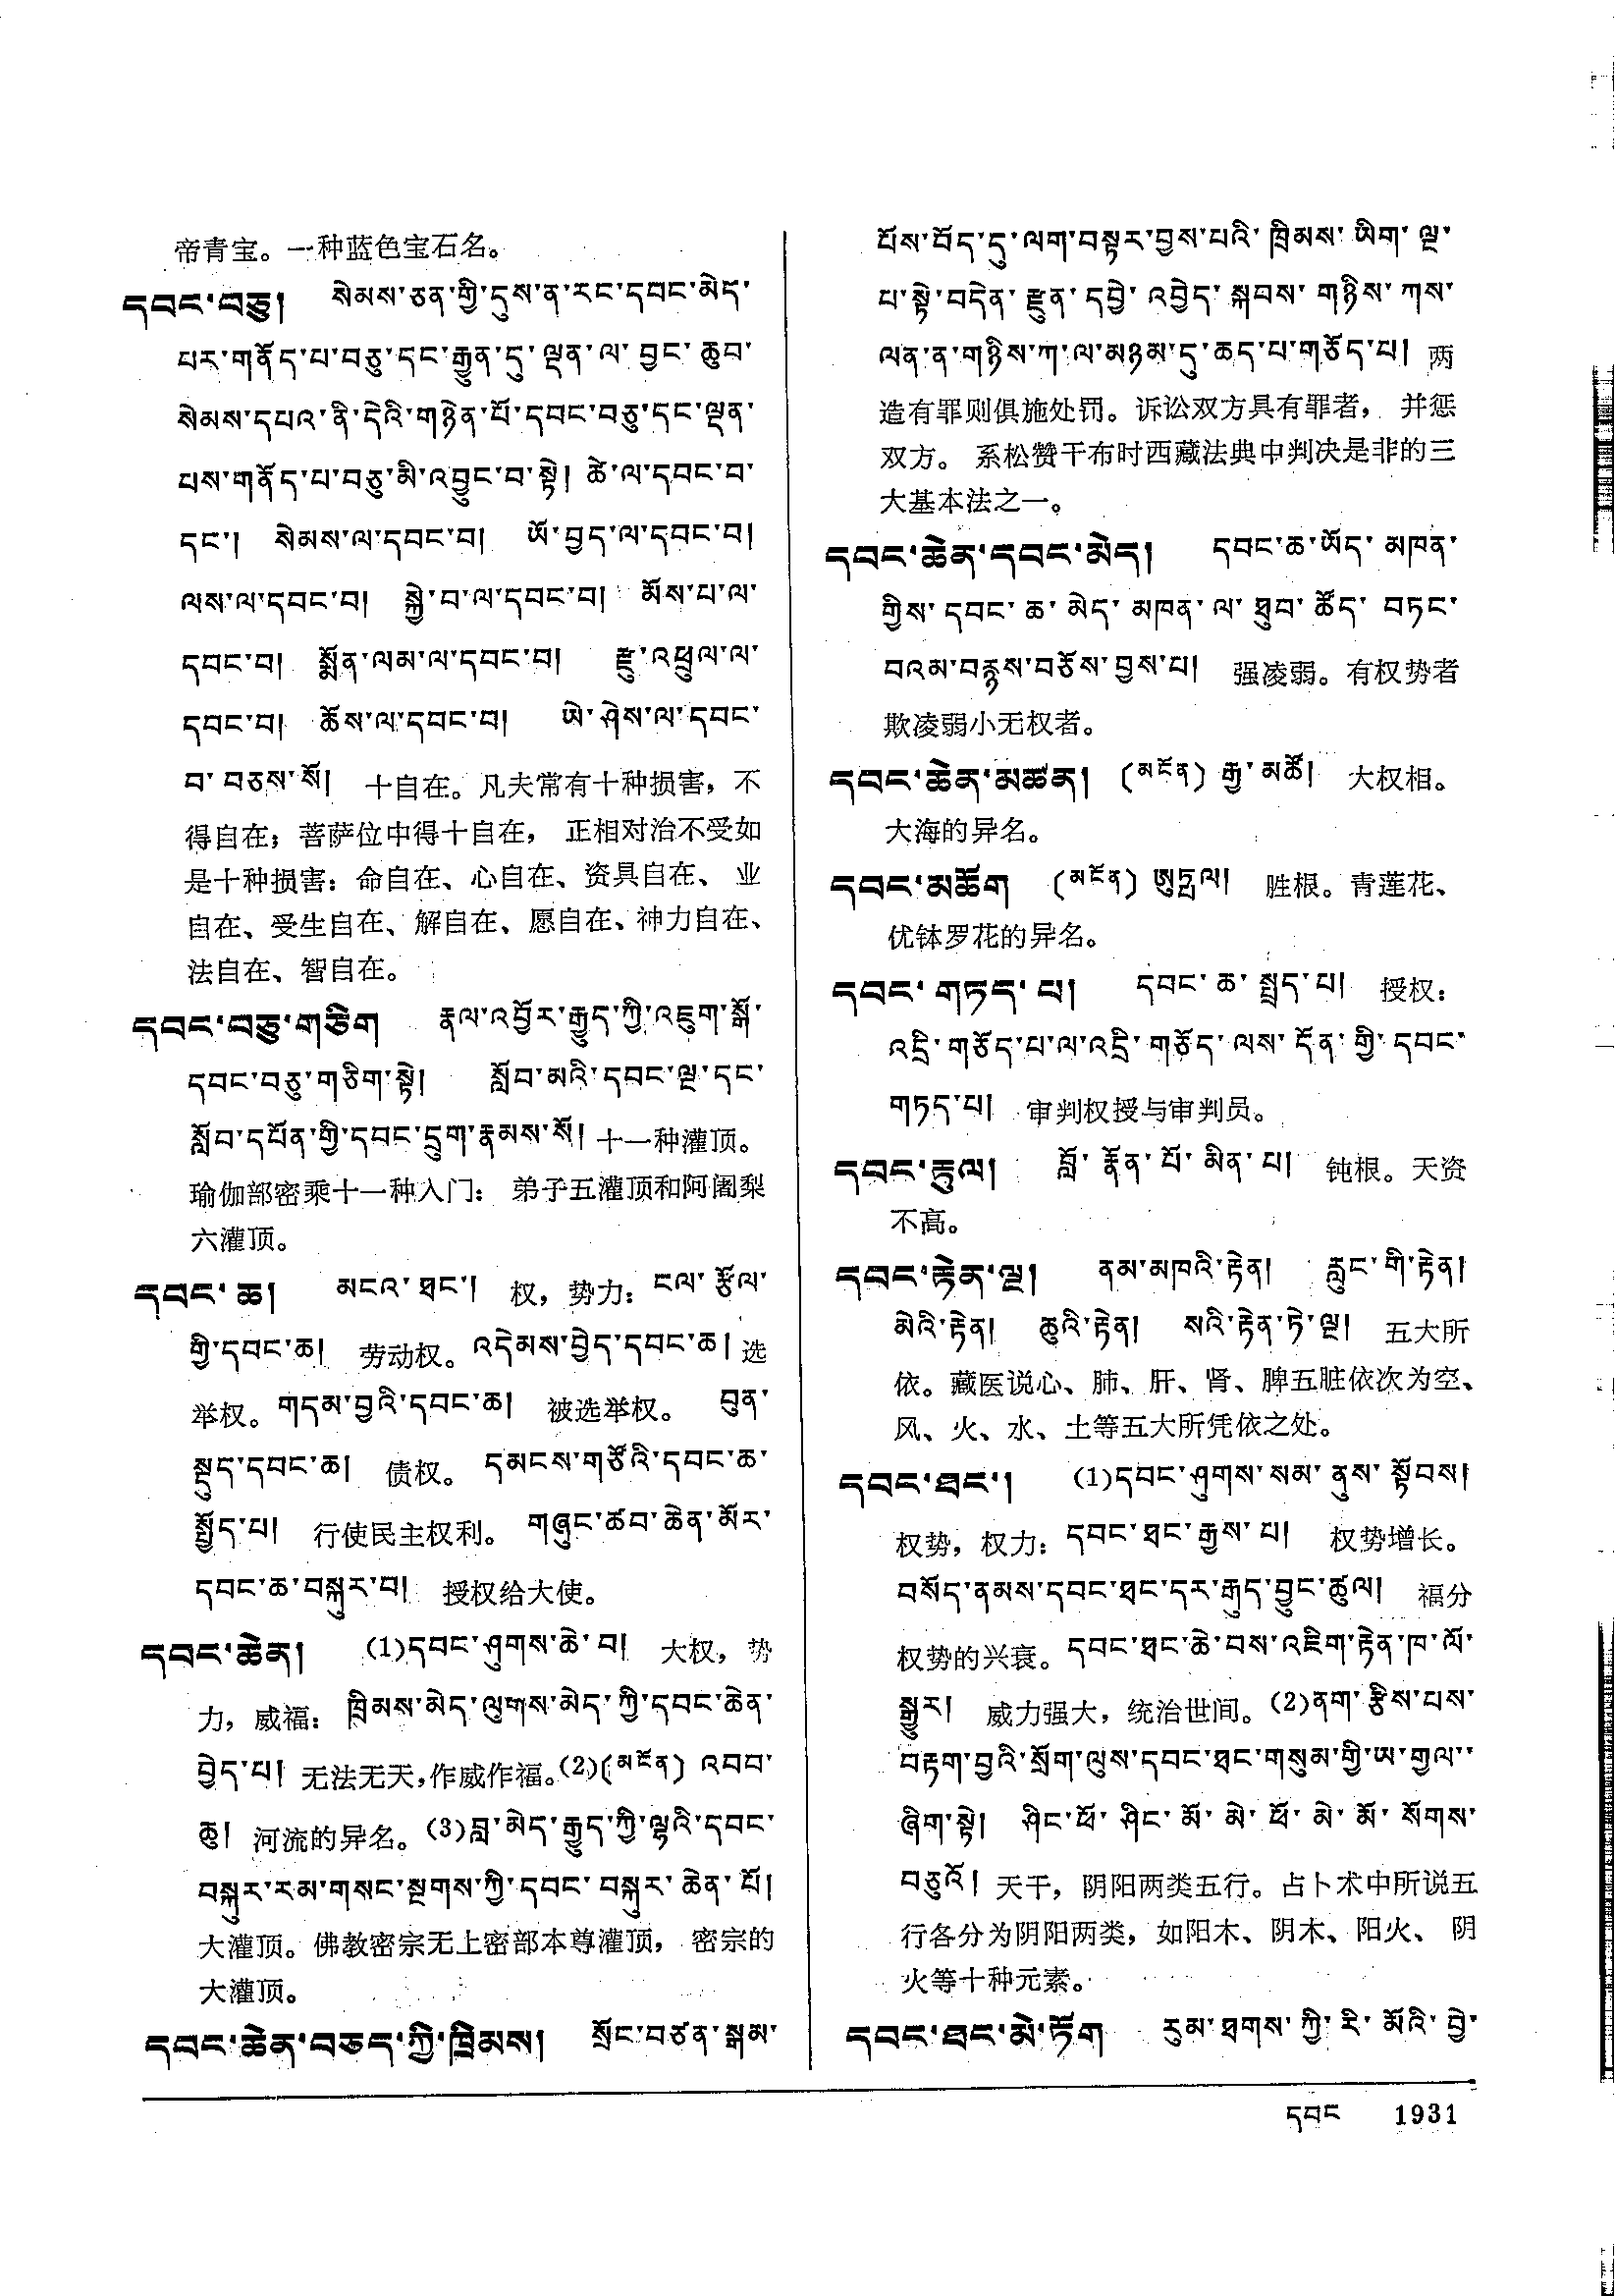 帝青宝。一种蓝色宝石名。
དབང་བཅུ། སེམས་ཅན་གྱི་དུས་ན་རང་དབང་མེད་
པར་གནོད་པ་བཅུ་དང་རྒྱུན་དུ་ལྡན་ལ་བྱང་ཆུབ་
སེམས་དཔའ་ནི་དེའི་གཉེན་པོ་དབང་བཅུ་དང་ལྡན་
པས་གནོད་པ་བཅུ་མི་འབྱུང་བ་སྟེ། ཚེ་ལ་དབང་བ་
དང་། སེམས་ལ་དབང་བ། ཡོ་བྱད་ལ་དབང་བ།
ལས་ལ་དབང་བ། སྐྱེ་བ་ལ་དབང་བ། མོས་པ་ལ་
དབང་བ། སྨོན་ལམ་ལ་དབང་བ། རྫུ་འཕྲུལ་ལ་
དབང་བ། ཆོས་ལ་དབང་བ། ཡེ་ཤེས་ལ་དབང་
བ་བཅས་སོ། 十自在。凡夫常有十种损害，不
得自在；菩萨位中得十自在，正相对治不受如
是十种损害：命自在、心自在、资具自在、业
自在、受生自在、解自在、愿自在、神力自在、
法自在、智自在。
དབང་བཅུ་གཅིག རྣལ་འབྱོར་རྒྱུད་ཀྱི་འཇུག་སྒོ་
དབང་བཅུ་གཅིག་སྟེ། སློབ་མའི་དབང་ལྔ་དང་
སློབ་དཔོན་གྱི་དབང་དྲུག་རྣམས་སོ། 十一种灌顶。
瑜伽部密乘十一种入门：弟子五灌顶和阿阇梨
六灌顶。
དབང་ཆ། མངའ་ཐང་། 权，势力：ངལ་རྩོལ་
གྱི་དབང་ཆ། 劳动权。འདེམས་བྱེད་དབང་ཆ། 选
举权。གདམ་བྱའི་དབང་ཆ། 被选举权。 བུན་
སྡུད་དབང་ཆ། 债权。 དམངས་གཙོའི་དབང་ཆ་
སྤྱོད་པ། 行使民主权利。 གཞུང་ཚབ་ཆེན་མོར་
དབང་ཆ་བསྐུར་བ། 授权给大使。
དབང་ཆེན། (1)དབང་ཤུགས་ཆེ་བ། 大权，势
力，威福：ཁྲིམས་མེད་ལུགས་མེད་ཀྱི་དབང་ཆེན་
བྱེད་པ། 无法无天，作威作福。(2)(མངོན) འབབ་
ཆུ། 河流的异名。(3)བླ་མེད་རྒྱུད་ཀྱི་ལྷའི་དབང་
བསྐུར་རམ་གསང་སྔགས་ཀྱི་དབང་བསྐུར་ཆེན་པོ།
大灌顶。佛教密宗无上密部本尊灌顶，密宗的
大灌顶。
དབང་ཆེན་བཅད་ཀྱི་ཁྲིམས། སྲོང་བཙན་སྒམ་
པོས་བོད་དུ་ལག་བསྟར་བྱས་པའི་ཁྲིམས་ཡིག་ལྔ་
པ་སྟེ་བདེན་རྫུན་དབྱེ་འབྱེད་སྐབས་གཉིས་ཀས་
ལན་ན་གཉིས་ཀ་ལ་མཉམ་དུ་ཆད་པ་གཅོད་པ། 两
造有罪则俱施处罚。诉讼双方具有罪者，并惩
双方。系松赞干布时西藏法典中判决是非的三
大基本法之一。
དབང་ཆེན་དབང་མེད། དབང་ཆ་ཡོད་མཁན་
གྱིས་དབང་ཆ་མེད་མཁན་ལ་ཐུབ་ཚོད་བཏང་
བའམ་བརྙས་བཅོས་བྱས་པ། 强凌弱。有权势者
欺凌弱小无权者。
དབང་ཆེན་མཚན། (མངོན) རྒྱ་མཚོ། 大权相。
大海的异名。
དབང་མཆོག (མངོན) ཨུཏྤལ། 胜根。青莲花、
优钵罗花的异名。
དབང་གཏད་པ། དབང་ཆ་སྤྲད་པ། 授权：
འདྲི་གཅོད་པ་ལ་འདྲི་གཅོད་ལས་དོན་གྱི་དབང་
གཏད་པ། 审判权授与审判员。
དབང་རྟུལ། བློ་རྣོན་པོ་མིན་པ། 钝根。天资
不高。
དབང་རྟེན་ལྔ། ནམ་མཁའི་རྟེན། རླུང་གི་རྟེན།
མེའི་རྟེན། ཆུའི་རྟེན། སའི་རྟེན་ཏེ་ལྔ། 五大所
依。藏医说心、肺、肝、肾、脾五脏依次为空、
风、火、水、土等五大所凭依之处。
དབང་ཐང་། (1)དབང་ཤུགས་སམ་ནུས་སྟོབས།
权势，权力：དབང་ཐང་རྒྱས་པ། 权势增长。
བསོད་ནམས་དབང་ཐང་དར་རྒུད་བྱུང་ཚུལ། 福分
权势的兴衰。དབང་ཐང་ཆེ་བས་འཇིག་རྟེན་ཁ་ལོ་
སྒྱུར། 威力强大，统治世间。(2)ནག་རྩིས་པས་
བརྟག་བྱའི་སྲོག་ལུས་དབང་ཐང་གསུམ་གྱི་ཨ་གྱལ་
ཞིག་སྟེ། ཤིང་ཕོ་ཤིང་མོ་མེ་ཕོ་མེ་མོ་སོགས་
བཅུའོ། 天干，阴阳两类五行。占卜术中所说五
行各分为阴阳两类，如阳木、阴木、阳火、阴
火等十种元素。
དབང་ཐང་མེ་ཏོག རུམ་ཐགས་ཀྱི་རི་མོའི་བྱེ་
དབང 1931